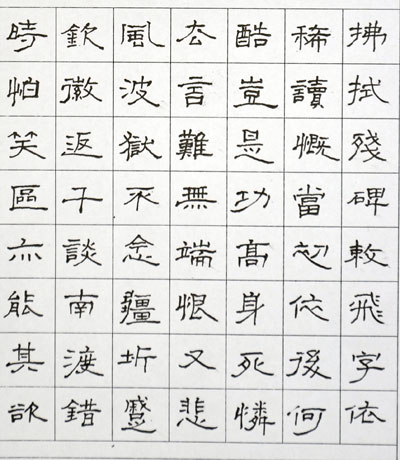 拂拭殘碑敕飛字依
稀讀慨當初依後何
酷豈是功高身死憐
厺言難無端恨又悲
風波獄不念疆圻蹙
欽徽返千談南渡錯
時怕笑區亦能其欲